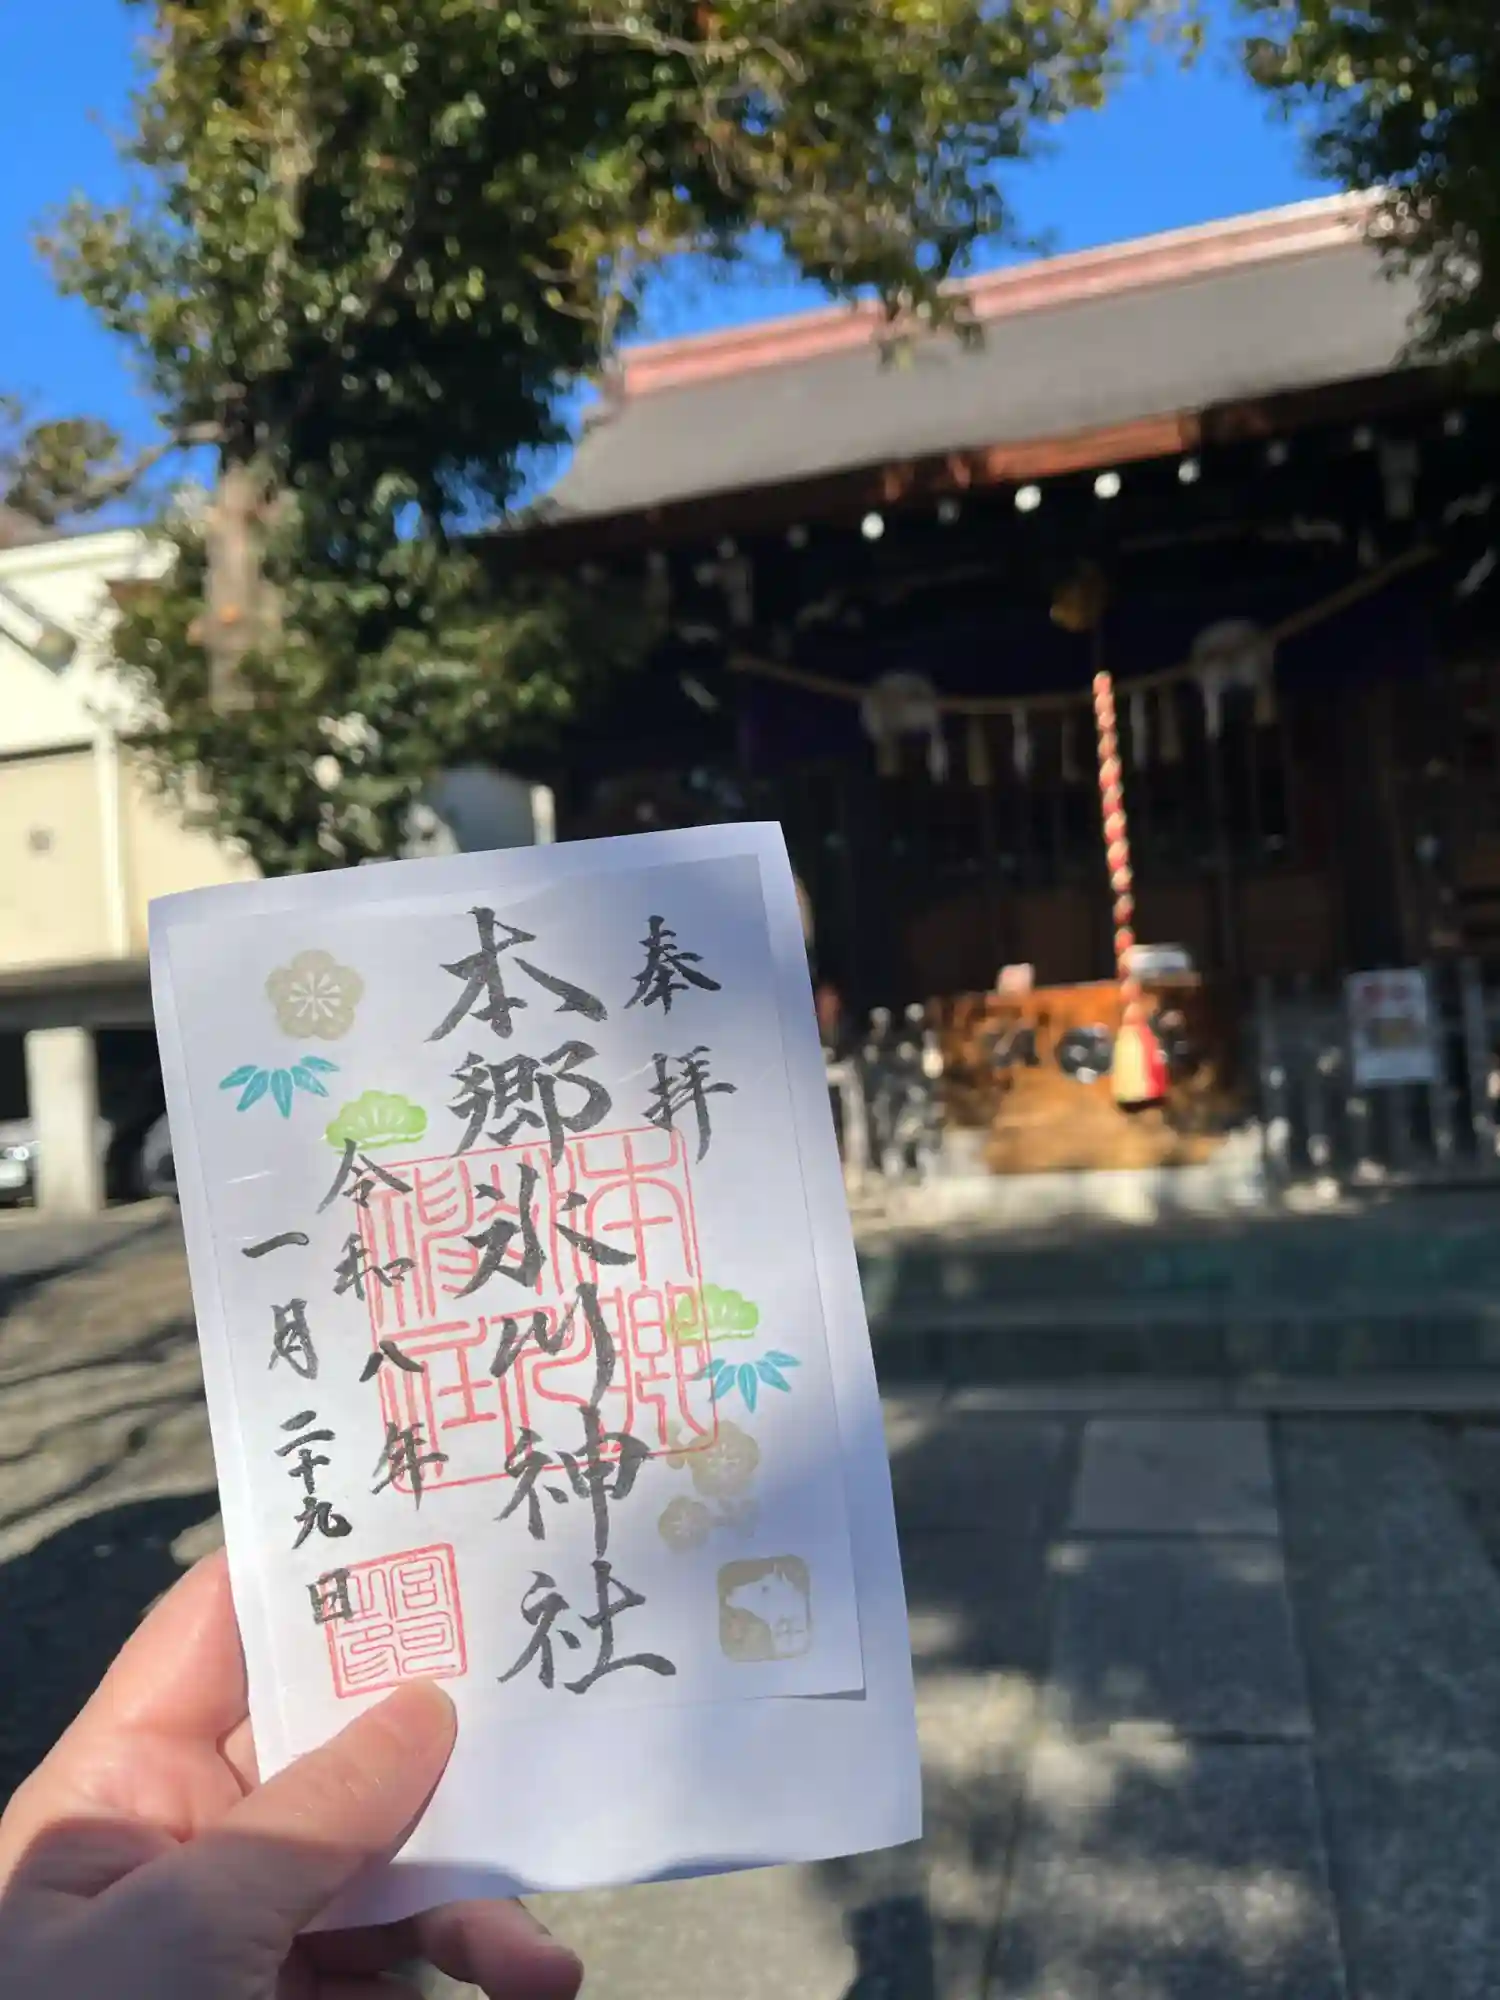 奉拝
本郷氷川神社
令和八年
一月二十九日
本郷
氷川
神社
宮司
之印
午